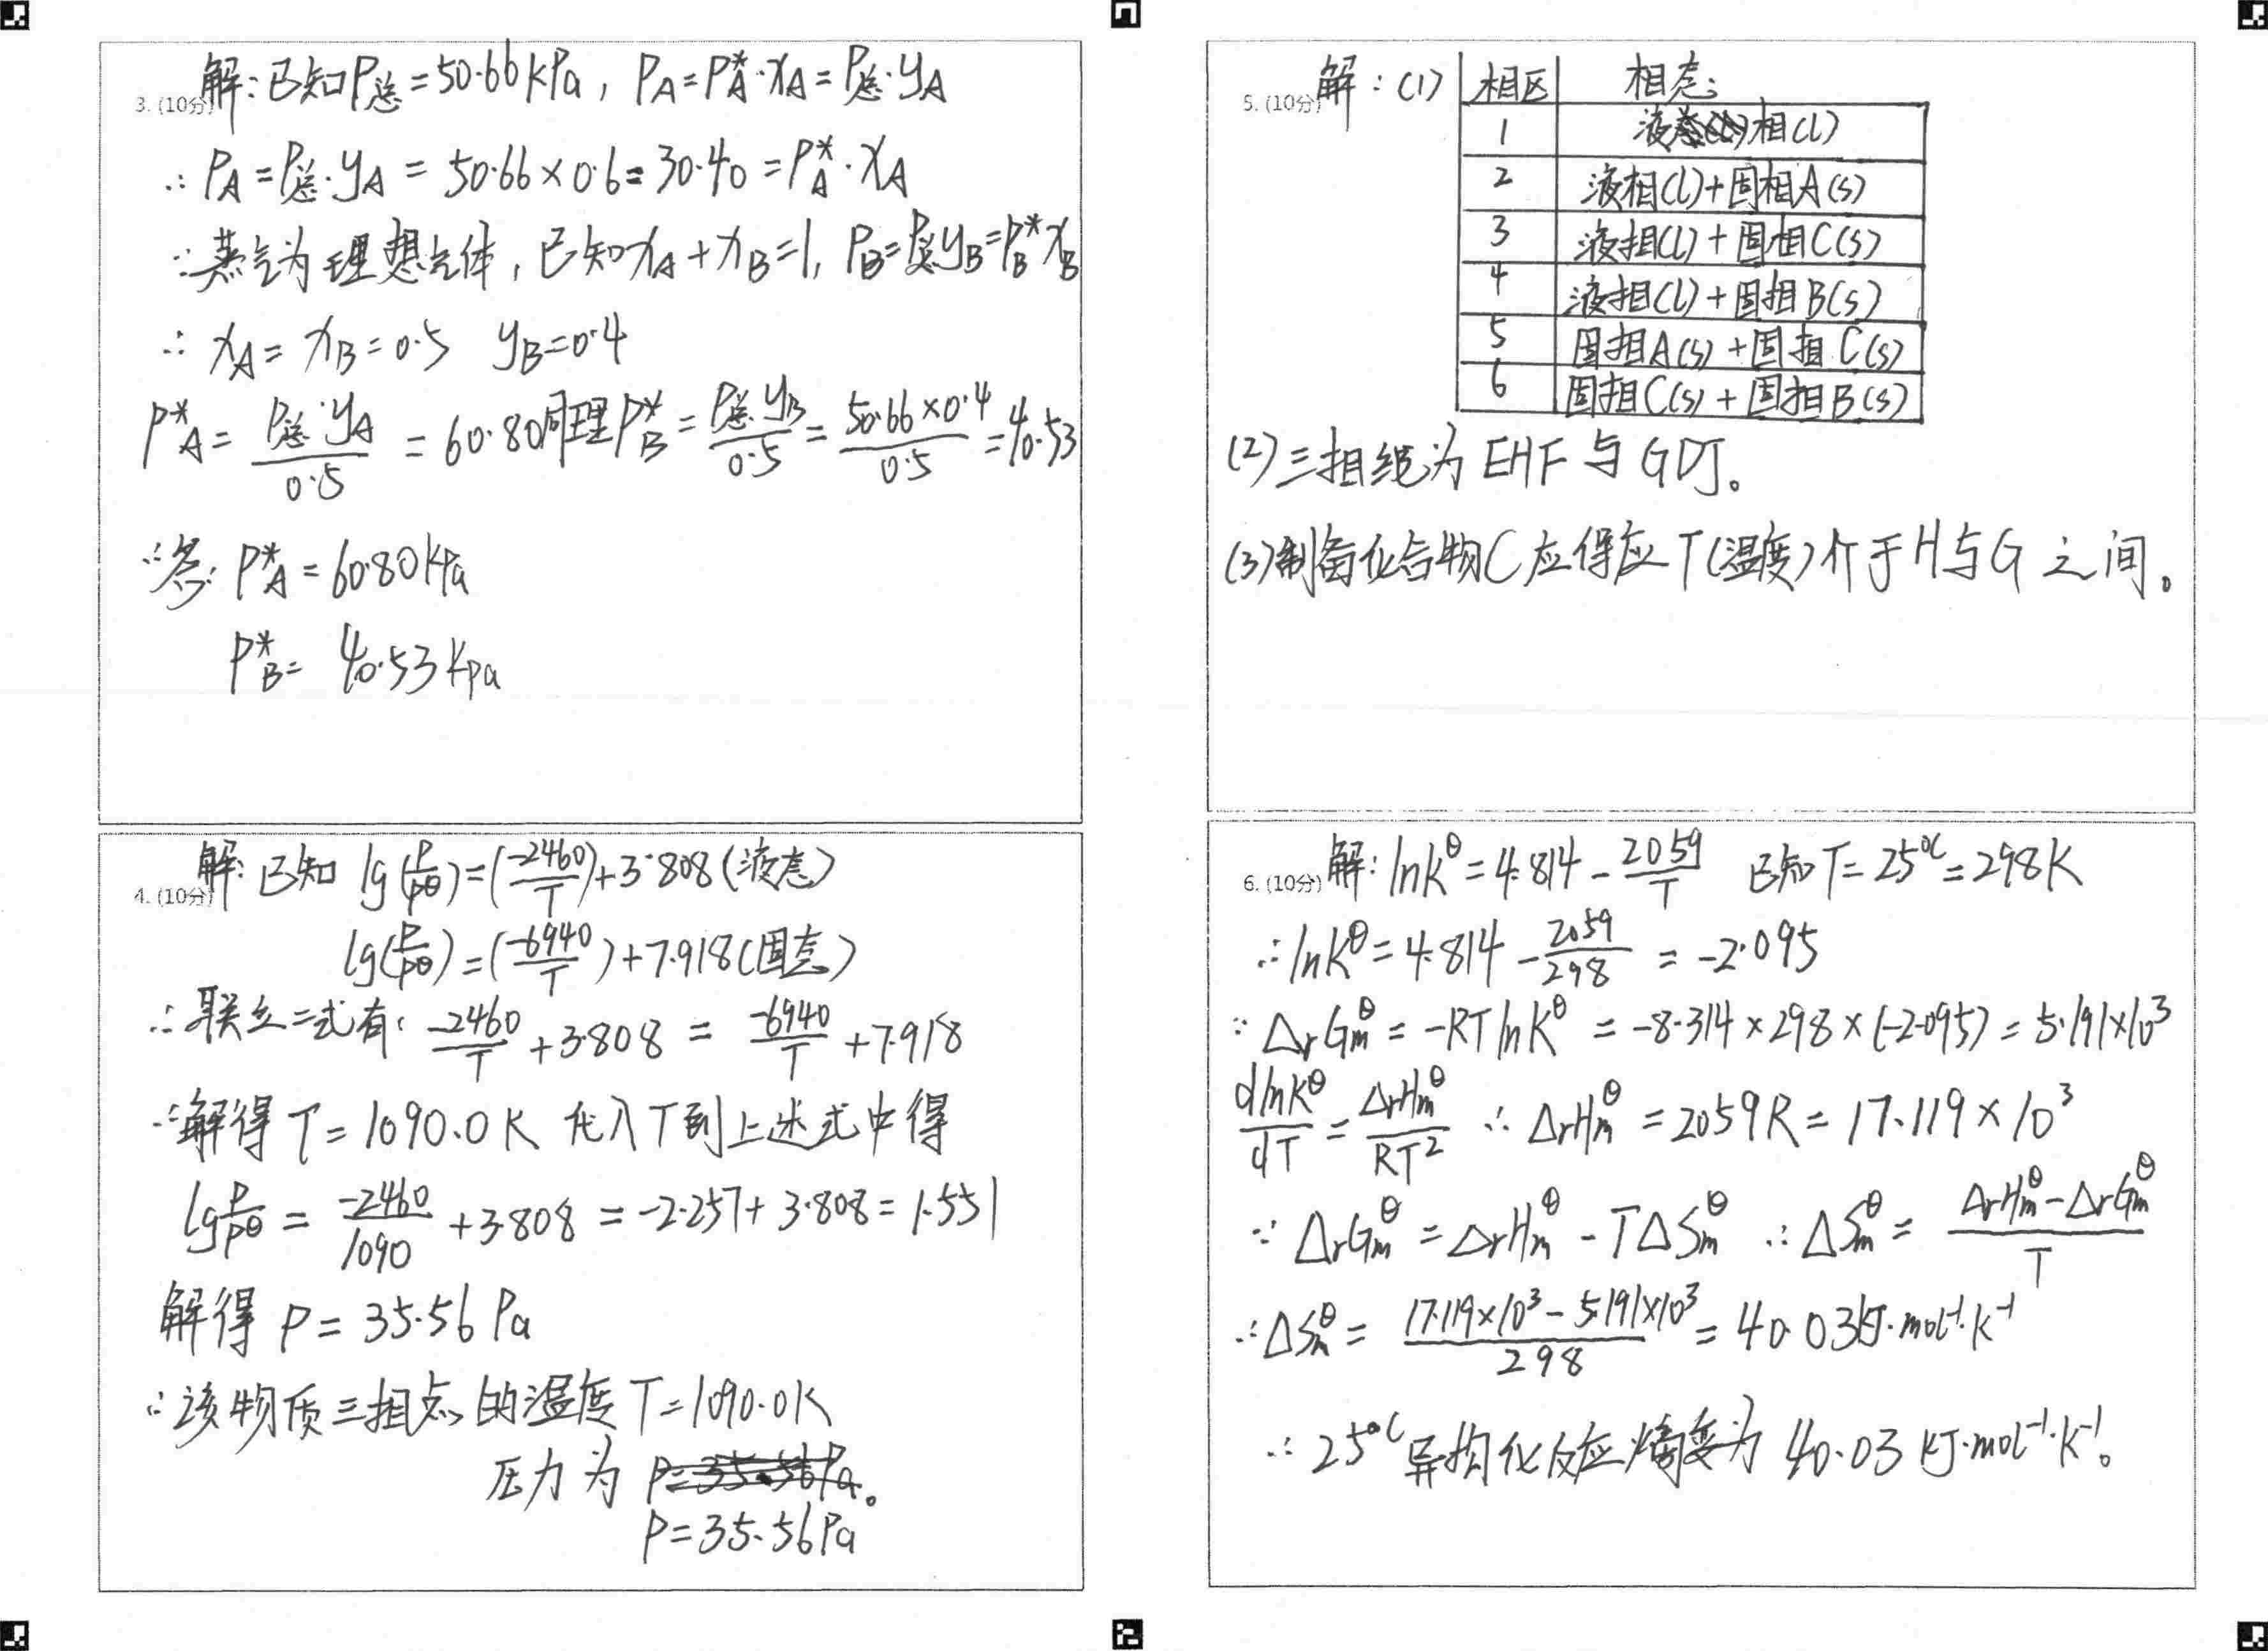 3. (10分)
解:已知P总=50.66kPa, PA=P*A·xA=P总·yA
∴ PA=P总·yA = 50.66×0.6=30.40=P*A·xA
∵蒸气为理想气体,已知xA+xB=1, PB=P总yB=P*B xB
∴ xA=xB=0.5 yB=0.4
P*A= P总·yA/0.5 = 60.80同理P*B= P总·yB/0.5 = 50.66×0.4/0.5 =40.53
∴答: P*A=60.80kPa
P*B= 40.53kpa
4. (10分)
解:已知 lg(P/Pθ)=(-2460/T)+3.808(液态)
lg(P/Pθ)=(-6940/T)+7.918(固态)
∴联立二式有: -2460/T +3.808 = -6940/T +7.918
∴解得T=1090.0K 代入T到上述式中得
lg P/Pθ = -2460/1090 +3.808 =-2.257+3.808=1.551
解得 P= 35.56 Pa
∴该物质三相点的温度T=1090.0K
压力为 P=35.56Pa。
P=35.56Pa
5. (10分)
解:(1)
相区 相态:
1 液态相(l)
2 液相(l)+固相A(s)
3 液相(l)+固相C(s)
4 液相(l)+固相B(s)
5 固相A(s)+固相C(s)
6 固相C(s)+固相B(s)
(2)三相线为EHF与GDJ。
(3)制备化合物C应保应T(温度)介于H与G之间。
6. (10分)
解: lnKθ=4.814- 2059/T 已知T=25℃=298K
∴lnKθ=4.814- 2059/298 = -2.095
∵ΔrGmθ=-RTlnKθ=-8.314×298×(-2.095)=5.191×10³
dlnKθ/dT = ΔrHmθ/RT² ∴ΔrHmθ=2059R=17.119×10³
∵ΔrGmθ=ΔrHmθ-TΔSmθ ∴ΔSmθ= ΔrHmθ-ΔrGmθ/T
∴ΔSmθ= 17.119×10³-5.191×10³/298 =40.03kJ·mol⁻¹·K⁻¹
∴25℃异构化反应熵变为40.03 kJ·mol⁻¹·K⁻¹。